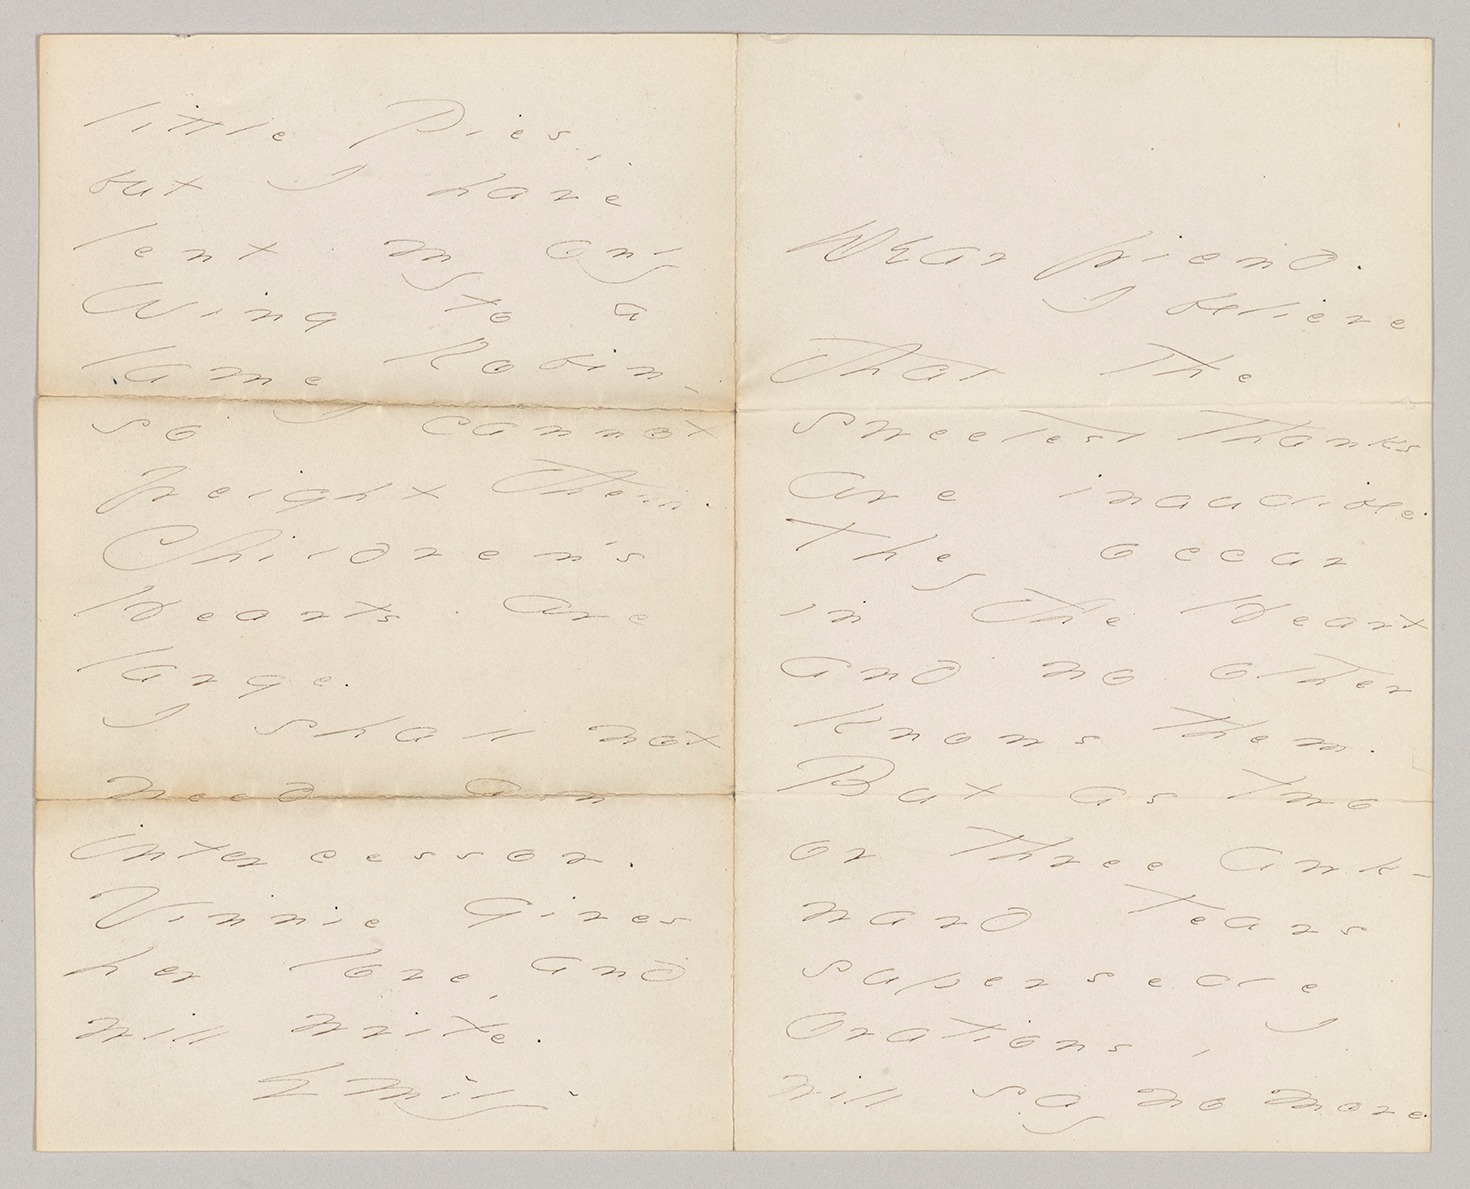 Dear friend.
I believe
that the
sweetest thanks
are inaudible.
They occur
in the Heart
and no other
knows them.
But as two
or three awk-
ward Tears
supersede
Orations, I
will say no more
little Pies,
but I have
lent my only
Wing to a
lame Robin-
so I cannot
freight them.
Children's
Hearts are
large.
I shall not
need an
intercessor.
Vinnie gives
her love, and
will write.
Emily -